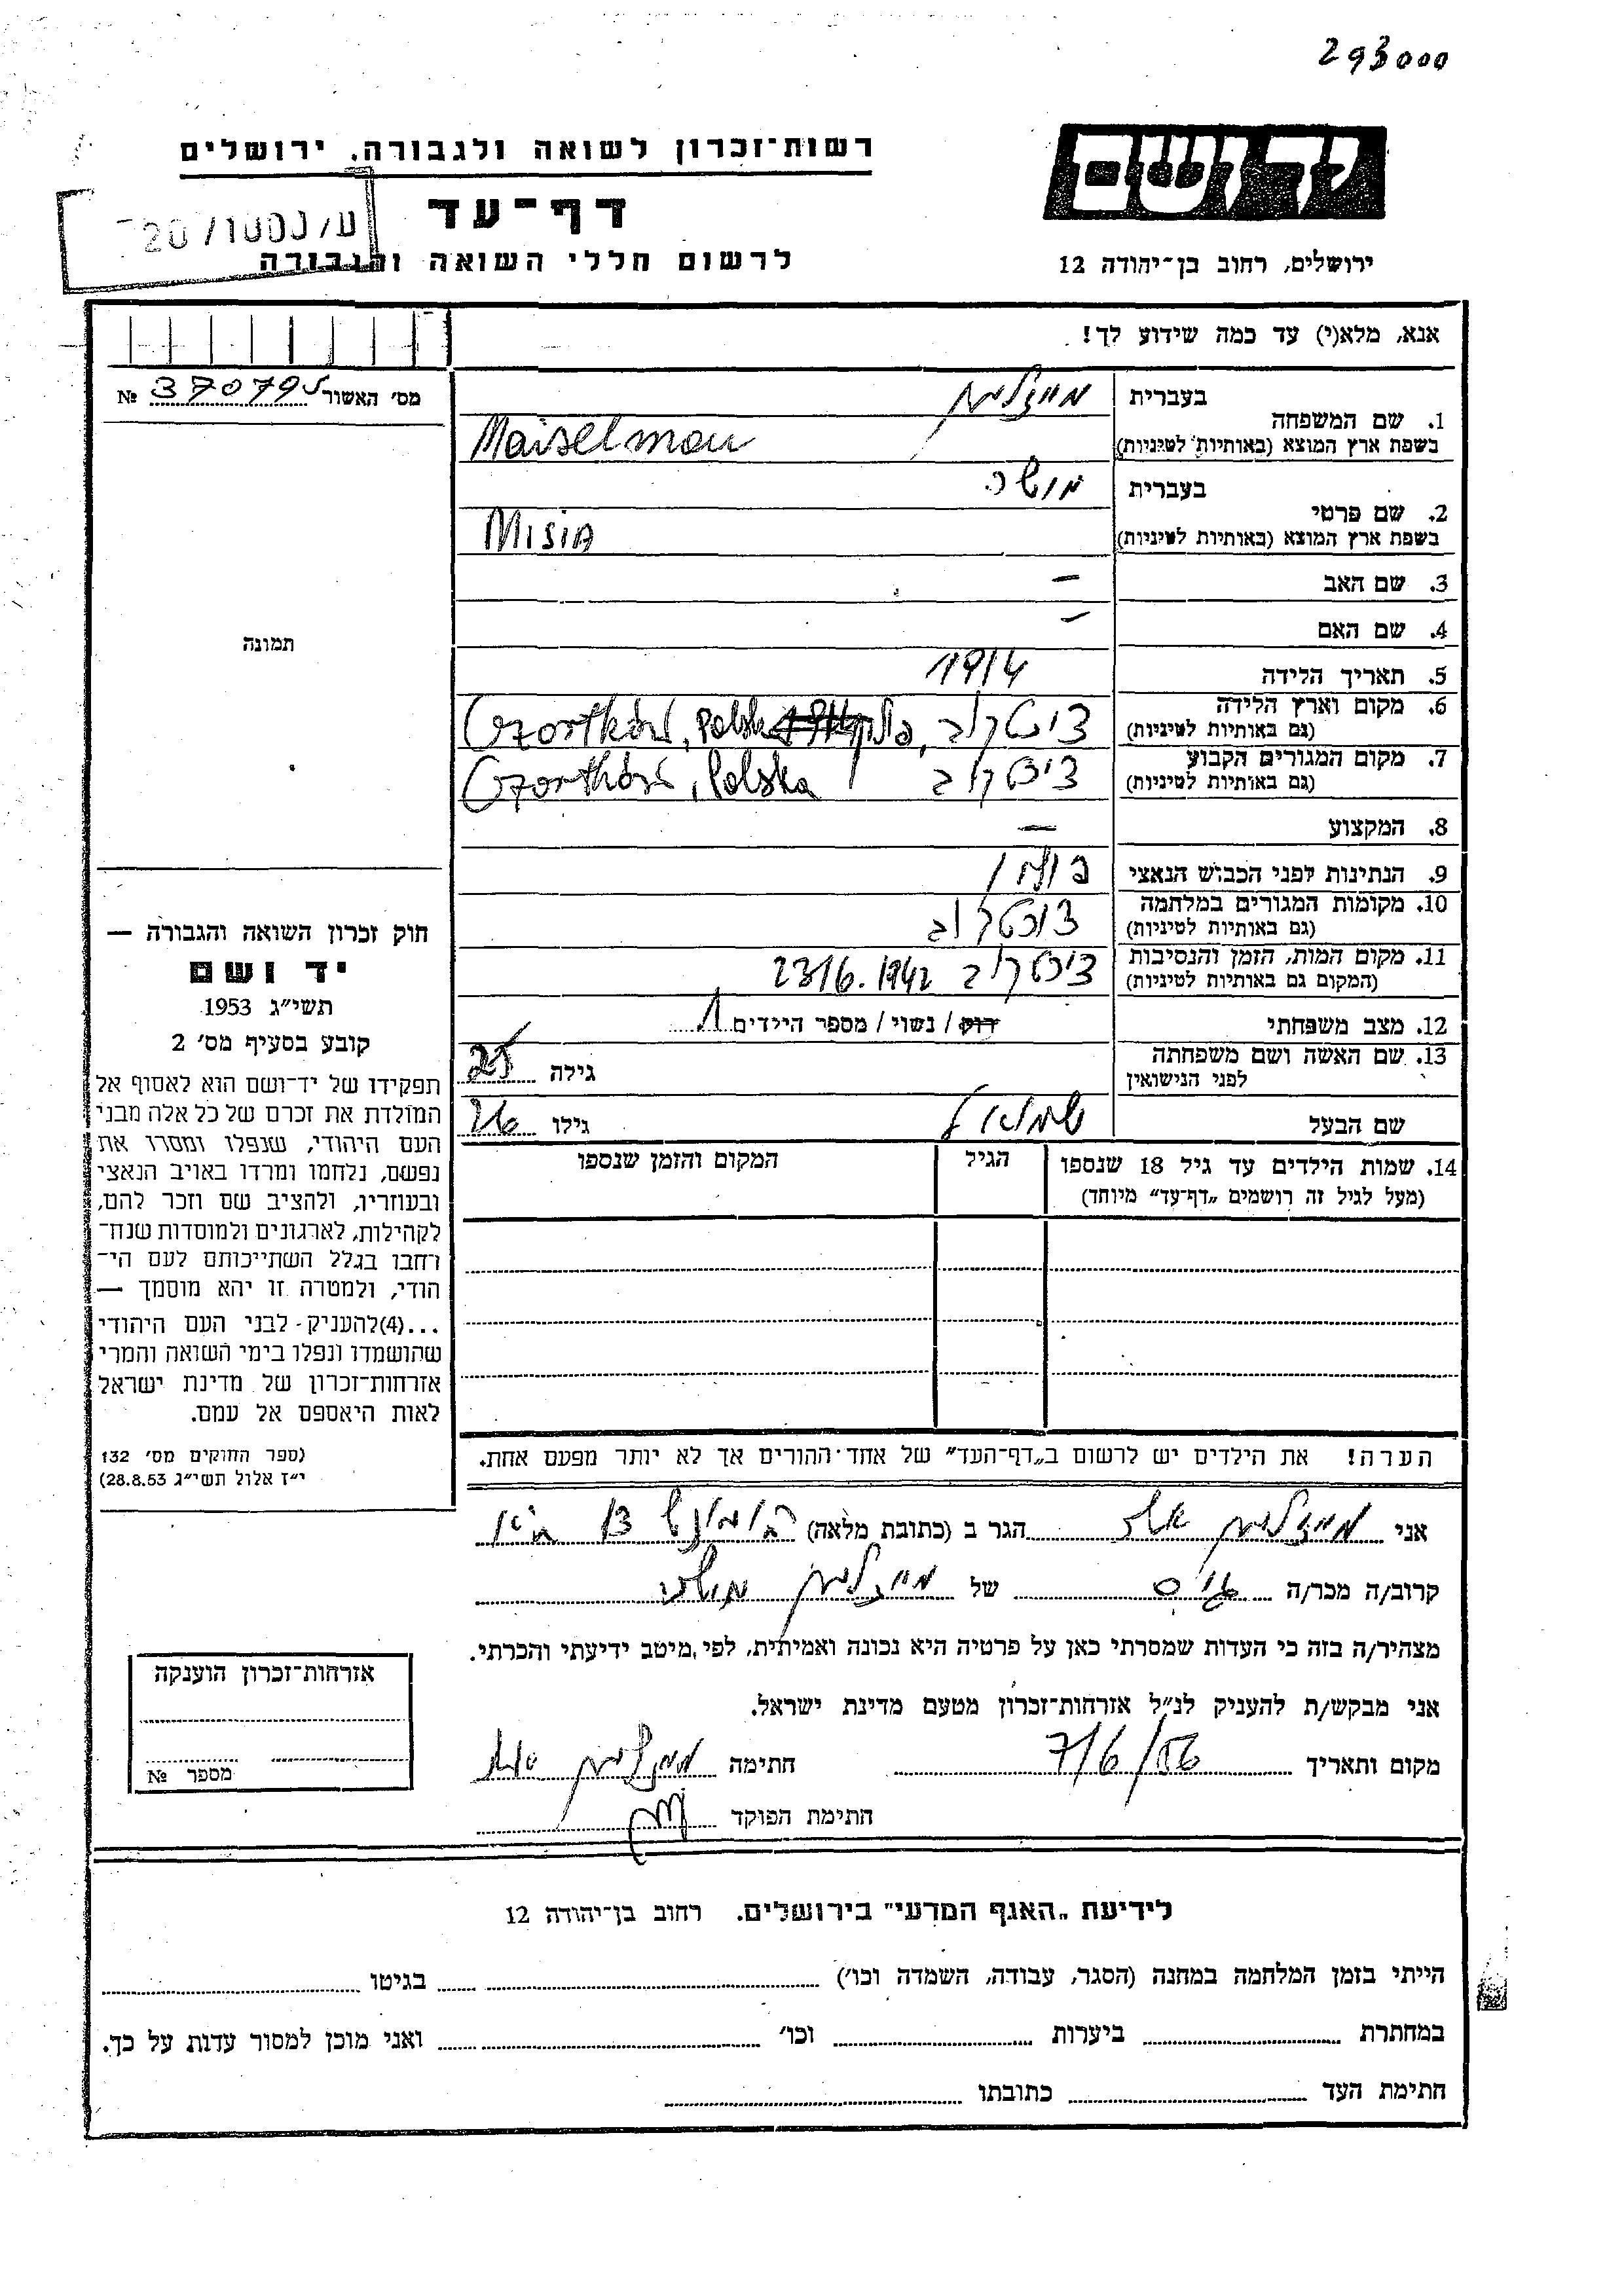 293000
רשות־זכרון לשואה ולגבורה. ירושלים
יד ושם
דף־עד
לרשום חללי השואה והגבורה
ירושלים, רחוב בן־יהודה 12
אנא, מלא(י) עד כמה שידוע לך!
מס' האשור № 370795
1. שם המשפחה
בעברית
מייזלמן
בשפת ארץ המוצא (באותיות לטיניות)
Maiselman
2. שם פרטי
בעברית
מושה
בשפת ארץ המוצא (באותיות לטיניות)
Misia
3. שם האב –
4. שם האם –
5. תאריך הלידה 1914
6. מקום וארץ הלידה
(גם באותיות לטיניות)
Czortków, Polska
7. מקום המגורים הקבוע
(גם באותיות לטיניות)
Czortków, Polska
8. המקצוע –
9. הנתינות לפני הכבוש הנאצי
10. מקומות המגורים במלחמה
(גם באותיות לטיניות)
11. מקום המות, הזמן והנסיבות
(המקום גם באותיות לטיניות)
23/6.1942
12. מצב משפחתי
רווק / נשוי / מספר הילדים 1
13. שם האשה ושם משפחתה
לפני הנישואין
גילה 25
שם הבעל שמואל גילו 26
14. שמות הילדים עד גיל 18 שנספו
(מעל לגיל זה רושמים „דף־עד” מיוחד)
הגיל
המקום והזמן שנספו
תמונה
חוק זכרון השואה והגבורה —
יד ושם
תשי״ג 1953
קובע בסעיף מס' 2
תפקידו של יד־ושם הוא לאסוף אל
המולדת את זכרם של כל אלה מבני
העם היהודי, שנפלו ומסרו את
נפשם, נלחמו ומרדו באויב הנאצי
ובעוזריו, ולהציב שם וזכר להם,
לקהילות, לארגונים ולמוסדות שנח־
רחבו בגלל השתייכותם לעם הי־
הודי, ולמטרה זו יהא מוסמך —
...(4) להעניק לבני העם היהודי
שהושמדו ונפלו בימי השואה והמרי
אזרחות־זכרון של מדינת ישראל
לאות היאספם אל עמם.
(ספר החוקים מס' 132
י״ז אלול תשי״ג 28.8.53)
הערה! את הילדים יש לרשום ב„דף־העד” של אחד ההורים אך לא יותר מפעם אחת.
אני מייזלמן הגר ב (כתובת מלאה)
קרוב/ה מכר/ה גיס של מייזלמן מושה
מצהיר/ה בזה כי העדות שמסרתי כאן על פרטיה היא נכונה ואמיתית, לפי מיטב ידיעתי והכרתי.
אני מבקש/ת להעניק לנ״ל אזרחות־זכרון מטעם מדינת ישראל.
מקום ותאריך 7/6/56 חתימה מייזלמן
חתימת הפוקד
אזרחות־זכרון הוענקה
מספר №
לידיעת „האגף המדעי” בירושלים. רחוב בן־יהודה 12
הייתי בזמן המלחמה במחנה (הסגר, עבודה, השמדה וכו') בגיטו
במחתרת ביערות וכו' ואני מוכן למסור עדות על כך.
חתימת העד כתובתו